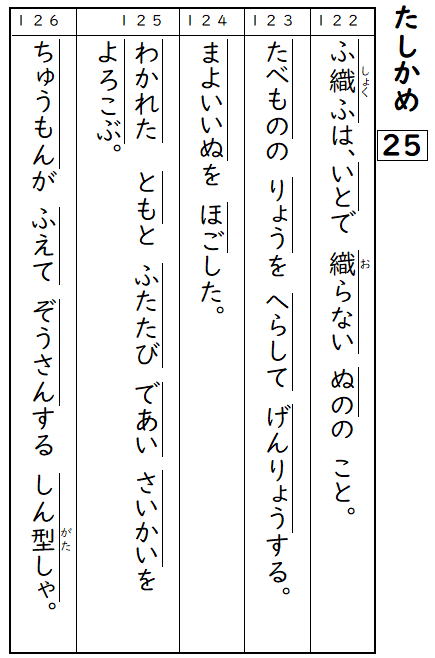 たしかめ
25
122
ふ織ふは、いとで 織らない ぬのの こと。
しょく
お
123
たべものの りょうを へらして げんりょうする。
124
まよいいぬを ほごした。
125
わかれた ともと ふたたび であい さいかいを
よろこぶ。
126
ちゅうもんが ふえて ぞうさんする しん型しゃ。
がた